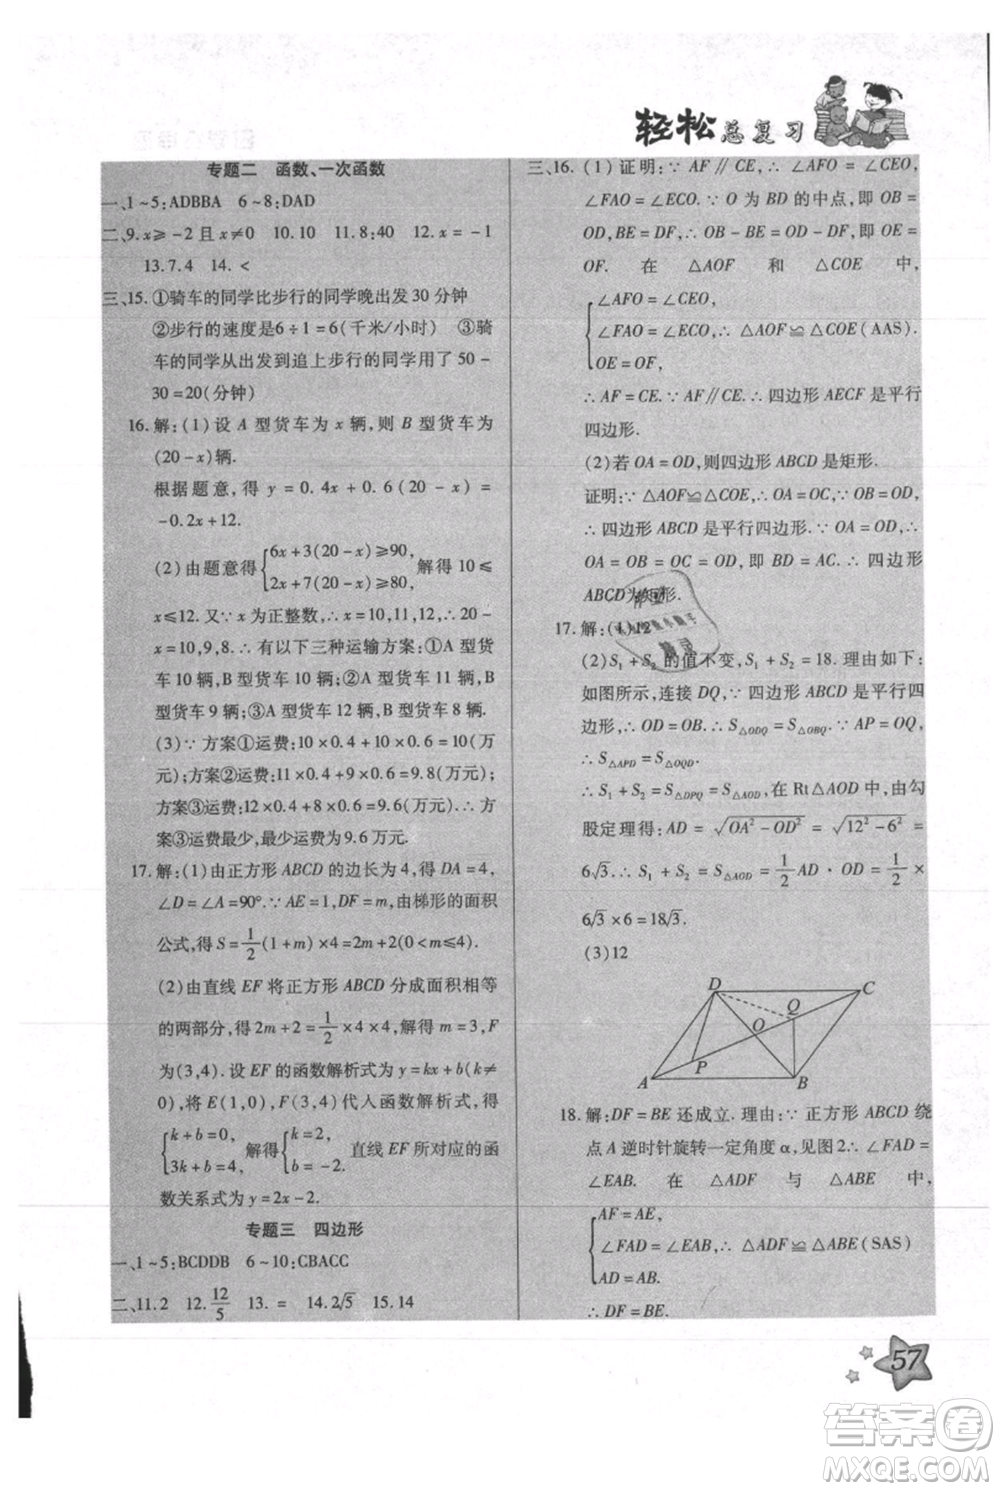 轻松总复习
专题二 函数、一次函数
一、1~5:ADBBA 6~8:DAD
二、9.x≥-2且x≠0 10.10 11.8:40 12.x=-1
13.7.4 14.<
三、15.①骑车的同学比步行的同学晚出发30分钟
②步行的速度是6÷1=6(千米/小时) ③骑
车的同学从出发到追上步行的同学用了50-
30=20(分钟)
16.解:(1)设A型货车为x辆,则B型货车为
(20-x)辆.
根据题意,得y=0.4x+0.6(20-x)=
-0.2x+12.
(2)由题意得{6x+3(20-x)≥90, 2x+7(20-x)≥80,解得10≤
x≤12.又∵x为正整数,∴x=10,11,12.∴
有以下三种运输方案:①A型货
车10辆,B型货车10辆;②A型货车11辆,B
型货车9辆;③A型货车12辆,B型货车8辆.
(3)∵方案①运费:10×0.4+10×0.6=10(万
元);方案②运费:11×0.4+9×0.6=9.8(万元);
方案③运费:12×0.4+8×0.6=9.6(万元).∴
方案③运费最少,最少运费为9.6万元.
17.解:(1)由正方形ABCD的边长为4,得DA=4,
∠D=∠A=90°.∵AE=1,DF=m,由梯形的面积
公式,得S=1/2(1+m)×4=2m+2(0≤m≤4).
(2)由直线EF将正方形ABCD分成面积相等
的两部分,得2m+2=1/2×4×4,解得m=3,F
为(3,4).设EF的函数解析式为y=kx+b(k≠
0),将E(1,0),F(3,4)代入函数解析式,得
{k+b=0, 3k+b=4,解得{k=2, b=-2.直线EF所对应的函
数关系式为y=2x-2.
专题三 四边形
一、1~5:BCDDB 6~10:CBACC
二、11.2 12.12/5 13.= 14.2√5 15.14
三、16.(1)证明:∵AF∥CE,∴∠AFO=∠CEO,
∠FAO=∠ECO.∵O为BD的中点,即OB=
OD,BE=DF,∴OB-BE=OD-DF,即OE=
OF.在△AOF和△COE中,
{∠AFO=∠CEO,
∠FAO=∠ECO,∴△AOF≌△COE(AAS).
OE=OF,
∴AF=CE.∵AF∥CE.∴四边形AECF是平行
四边形.
(2)若OA=OD,则四边形ABCD是矩形.
证明:∵△AOF≌△COE,∴OA=OC,∵OB=OD,
∴四边形ABCD是平行四边形.∵OA=OD,
∴OA=OB=OC=OD,即BD=AC.∴四边形
ABCD为矩形.
17.解:(1)12
(2)S₁+S₂的值不变,S₁+S₂=18.理由如下:
如图所示,连接DQ,∵四边形ABCD是平行四
边形,∴OD=OB.∴S△ODQ=S△OBQ.∵AP=OQ,
∴S△APD=S△OQD.
∴S₁+S₂=S△DPQ=S△AOD,在Rt△AOD中,由勾
股定理得:AD=√(OA²-OD²)=√(12²-6²)=
6√3.∴S₁+S₂=S△AOD=1/2AD·OD=1/2×
6√3×6=18√3.
(3)12
D C
Q
O
P
A B
18.解:DF=BE还成立.理由:∵正方形ABCD绕
点A逆时针旋转一定角度α,见图2∴∠FAD=
∠EAB.在△ADF与△ABE中,
{AF=AE,
∠FAD=∠EAB,∴△ADF≌△ABE(SAS)
AD=AB.
∴DF=BE.
57
答案卷
MXQE.COM